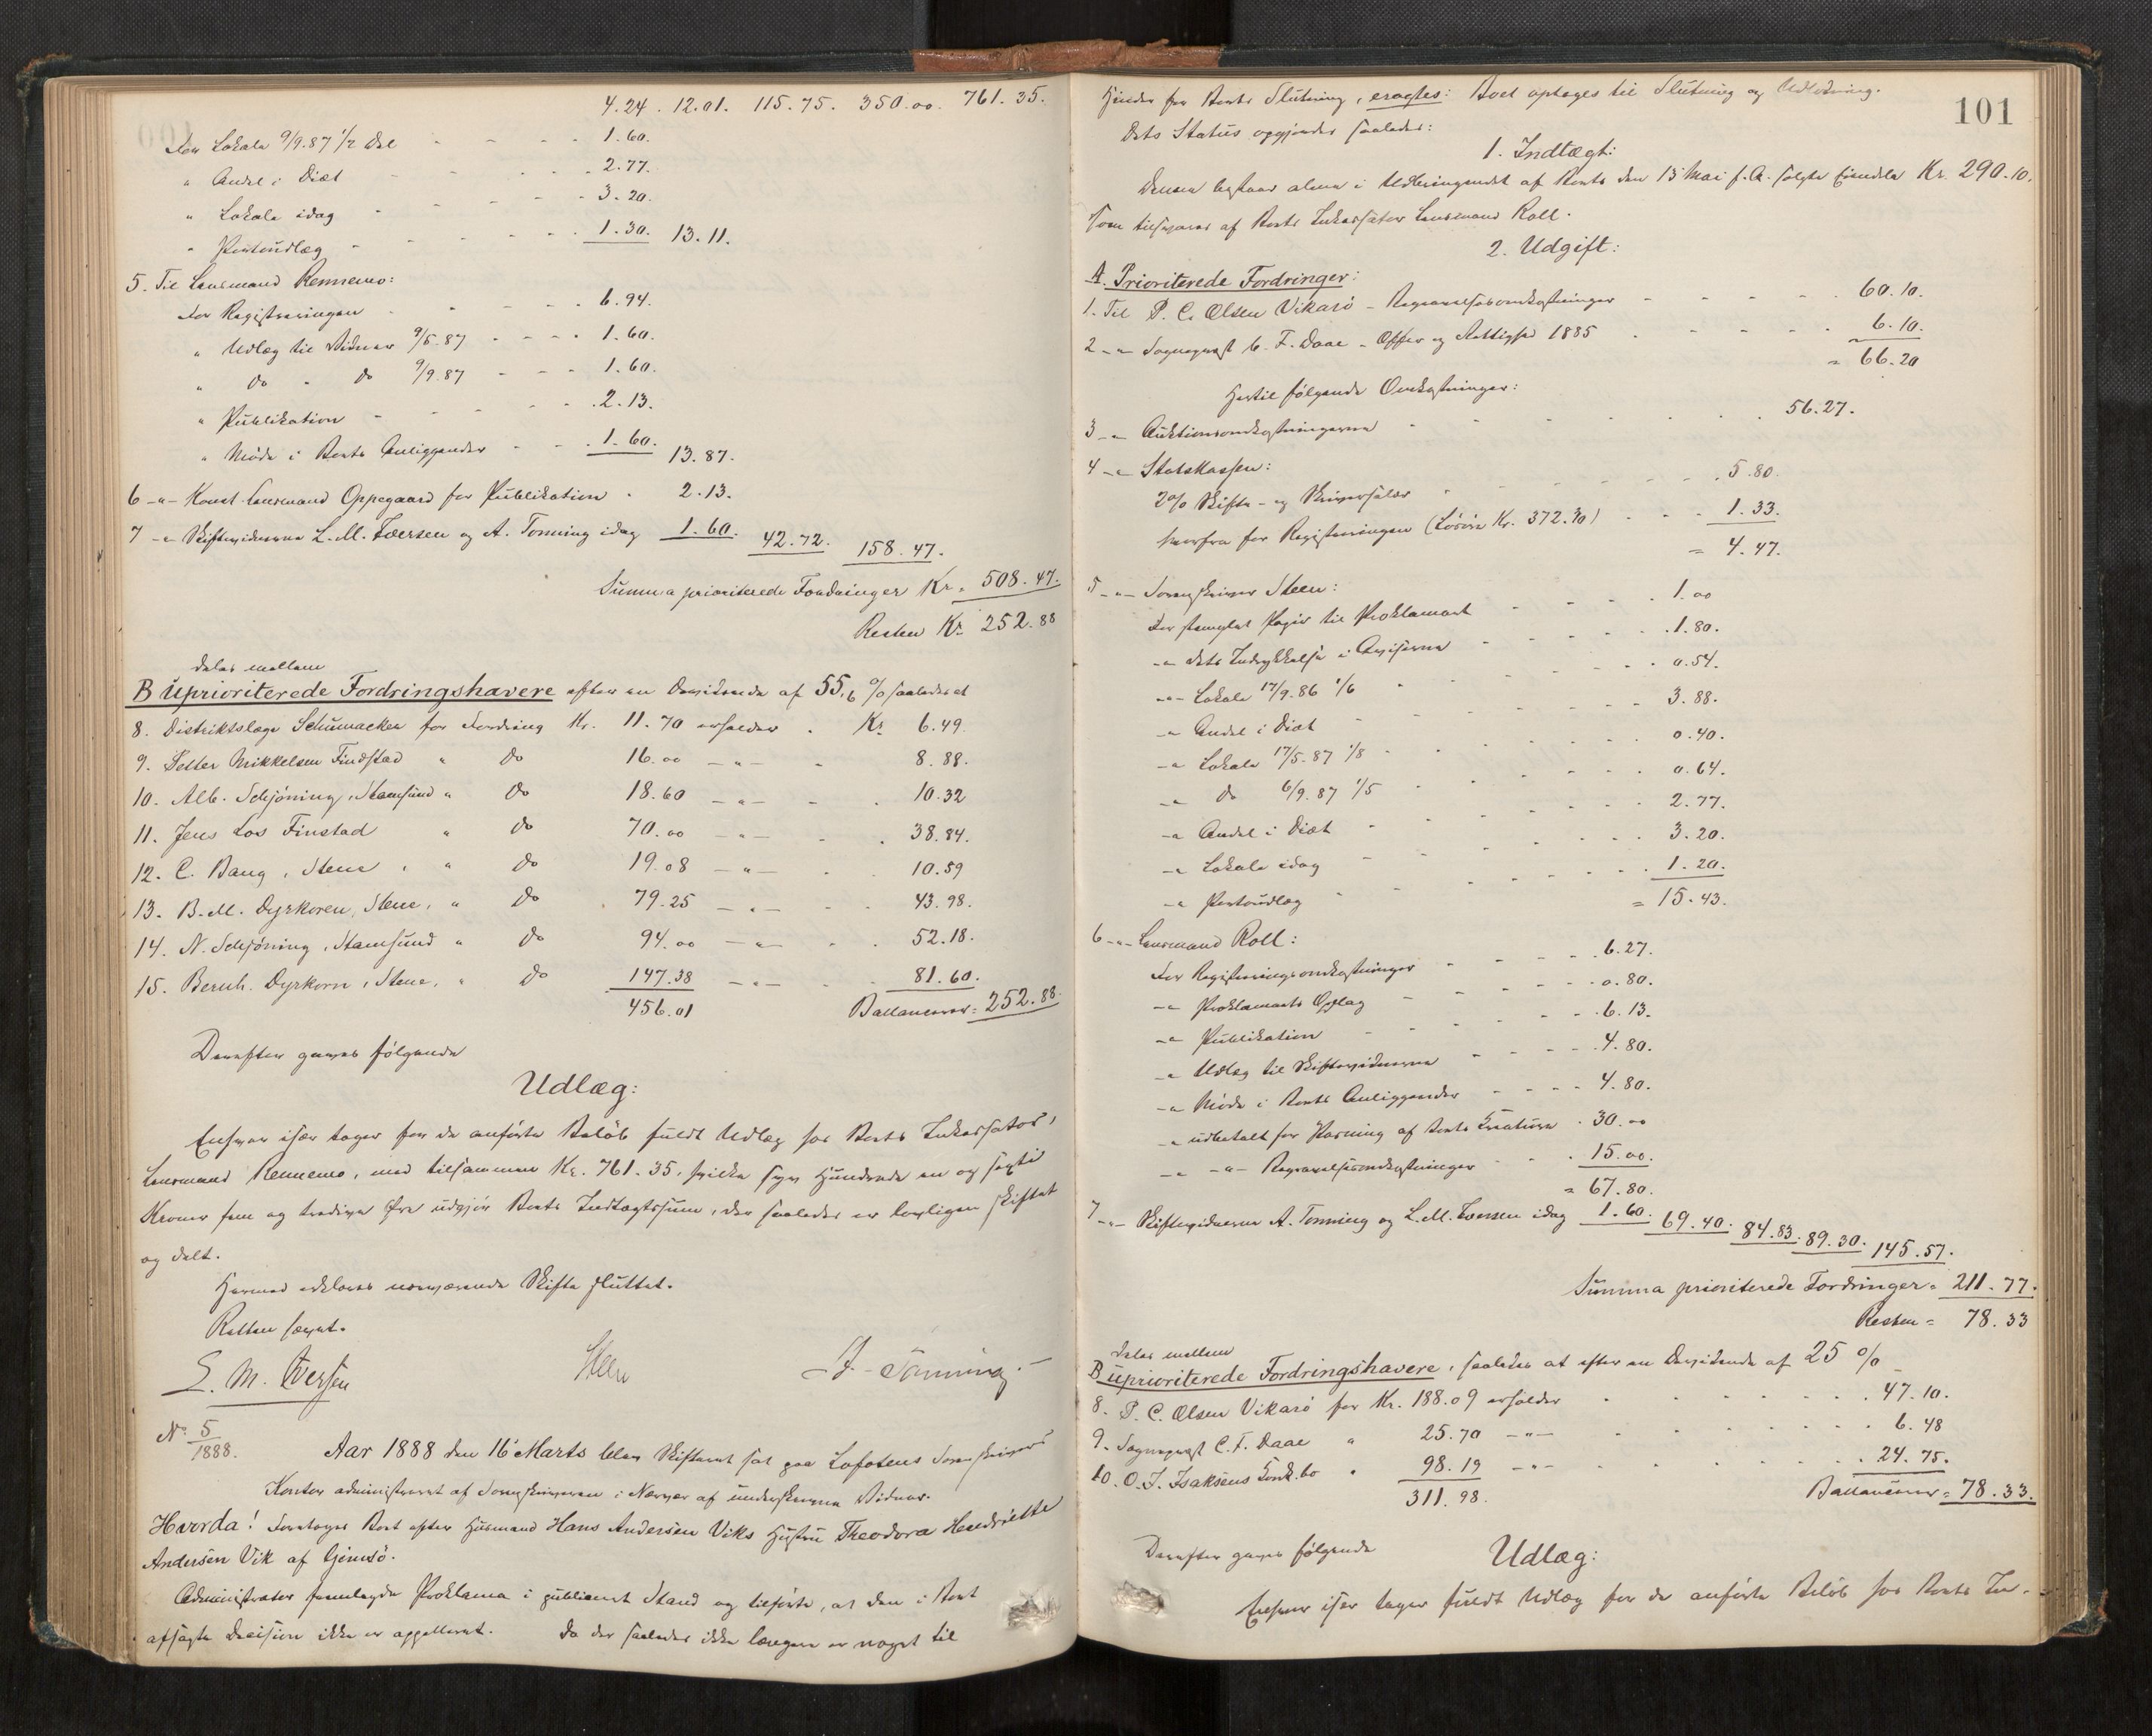 4.24. 12.01. 115.75. 350.00. 761.35.
For Lokale 9/9.87 1/2 Del - - - - 1.60.
" Andel i Diæt - - - - 2.77.
" Lokale idag - - - - 3.20.
" Portoudlæg - - - - 1.30. 13.11.
5. Til Lensmand Rennemo:
For Registreringen - - - - 6.94.
" Udlæg til Vidner 9/5.87 - - - - 1.60.
" do " do 9/9.87 - - - 1.60.
" Publikation - - - - 2.13.
" Møde i Boets Anliggender - - - 1.60. 13.87.
6 -"- Konst. Lensmand Oppegaard for Publikation . 2.13.
7 -"- Skiftevidnerne L. M. Iversen og A. Tonning idag 1.60. 42.72. 158.47.
Summa prioriterede Fordringer Kr. 508.47.
Resten Kr. 252.88
deles mellem
B Uprioriterede Fordringshavere efter en Dividende af 55,6 % saaledes at
8. Distriktslæge Schumacher for Fordring Kr. 11.70 erholder . Kr. 6.49.
9. Petter Mikkelsen Findstad " do 16.00 -"- - 8.88.
10. Alb. Schjøning, Stamsund " do 18.60 -"- - 10.32
11. Jens Los Finstad " do 70.00 -"- - 38.84.
12. C. Bang, Stene, " do 19.08 -"- - 10.59
13. B. M. Dyrkoren, Stene, " do 79.25 -"- - 43.98.
14. N. Schjøning, Stamsund " do 94.00 -"- - 52.18.
15. Bernh. Dyrkorn, Stene, " do 147.38 -"- - 81.60.
456.01 Ballancerer = 252.88.
Derefter gaves følgende
Udlæg:
Enhver især tager for de anførte Beløb fuldt Udlæg hos Boets Inkassator,
Lensmand Rennemo, med tilsammen Kr. 761.35, hvilke syv Hundrede en og sexti
Kroner fem og tredive Øre udgjør Boets Indtægtssum, der saaledes er lovligen skiftet
og delt.
Hermed erklæres nærværende Skifte sluttet.
Retten hævet.
L. M. Iversen Steen A. Tonning.
No. 5/1888. Aar 1888 den 16 Marts blev Skifteret sat paa Lofotens Sorenskriver
Kontor administreret af Sorenskriveren i Nærvær af underskrevne Vidner.
Hvorda! Foretoges Boet efter Husmand Hans Andersen Viks Hustru Theodora Hendriette
Andersen Vik af Gimsø.
Administrator fremlagde Proklama i publiceret Stand og tilførte, at den i Boet
afsagte Decision ikke er appelleret. Da der saaledes ikke længere er noget til
101
Hinder for Boets Slutning, eragtes: Boet optages til Slutning og Udlodning.
Dets Status opgjøres saaledes:
1. Indtægt:
Denne bestaar alene i Udbringendet af Boets den 13 Mai f. A. solgte Eiendele Kr. 290.10.
som tilsvares af Boets Inkassator Lensmand Roll.
2. Udgift:
A. Prioriterede Fordringer:
1. Til P. C. Olsen Vikarø - Begravelsesomkostninger - - - - 60.10.
2 -"- Sogneprest C. F. Daae - Offer og Rettighed 1885 - - - 6.10.
= 66.20
Hertil følgende Omkostninger:
3 -"- Auktionsomkostningerne - - - - 56.27.
4 -"- Statskassen:
2% Skifte- og Skriversalær - - - - 5.80.
herfra for Registreringen (Løsøre Kr. 372.30) - - - 1.33.
= 4.47.
5 -"- Sorenskriver Steen:
For stemplet Papir til Proklamaet - - - 1.00
-"- dets Indrykkelse i Aviserne - - - 1.80.
-"- Lokale 17/9.86 1/6 - - - 0.54.
-"- Andel i Diæt - - - 3.88.
-"- Lokale 17/5.87 1/8 - - - 0.40.
-"- do 6/9.87 1/5 - - - 0.64.
-"- Andel i Diæt - - - 2.77.
-"- Lokale idag - - - 3.20.
-"- Portoudlæg - - - 1.20.
= 15.43.
6 -"- Lensmand Roll:
For Registreringsomkostninger - - - 6.27.
-"- Proklamaets Opslag - - - 0.80.
-"- Publikation - - - 6.13.
-"- Udlæg til Skiftevidnerne - - - 4.80.
-"- Møde i Boets Anliggender - - - 4.80.
-"- udbetalt for Pasning af Boets Kreaturer . 30.00
-"- -"- Begravelsesomkostninger - . 15.00.
= 67.80.
7 -"- Skiftevidnerne A. Tonning og L. M. Iversen idag 1.60. 69.40. 84.83. 89.30. 145.57.
Summa prioriterede Fordringer = 211.77.
Resten = 78.33
deles mellem
B Uprioriterede Fordringshavere, saaledes at efter en Dividende af 25 %
8. P. C. Olsen Vikarø for Kr. 188.09 erholder - - - 47.10.
9. Sogneprest C. F. Daae " 25.70 -"- - - - 6.48
10. O. J. Isaksens Konk.bo " 98.19 -"- - - - 24.75.
311.98. Ballancerer = 78.33.
Derefter gaves følgende
Udlæg:
Enhver især tager fuldt Udlæg for de anførte Beløb hos Boets In-